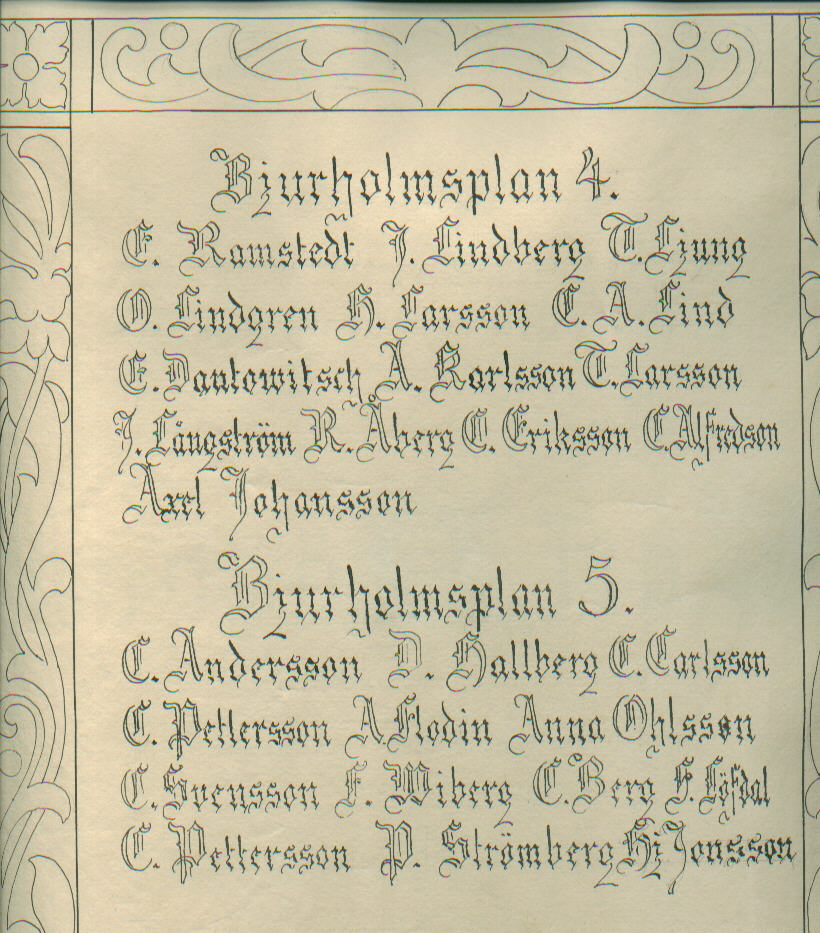 Bjurholmsplan 4.
E. Ramstedt J. Lindberg T. Ljung
O. Lindgren H. Larsson C. A. Lind
E. Dantowitsch A. Karlsson T. Larsson
J. Långström R. Åberg C. Eriksson C. Alfredson
Axel Johansson
Bjurholmsplan 5.
C. Andersson D. Hallberg C. Carlsson
C. Pettersson A. Flodin Anna Ohlsson
C. Svensson F. Wiberg C. Berg S. Löfdal
C. Pettersson P. Strömberg Hj Jonsson